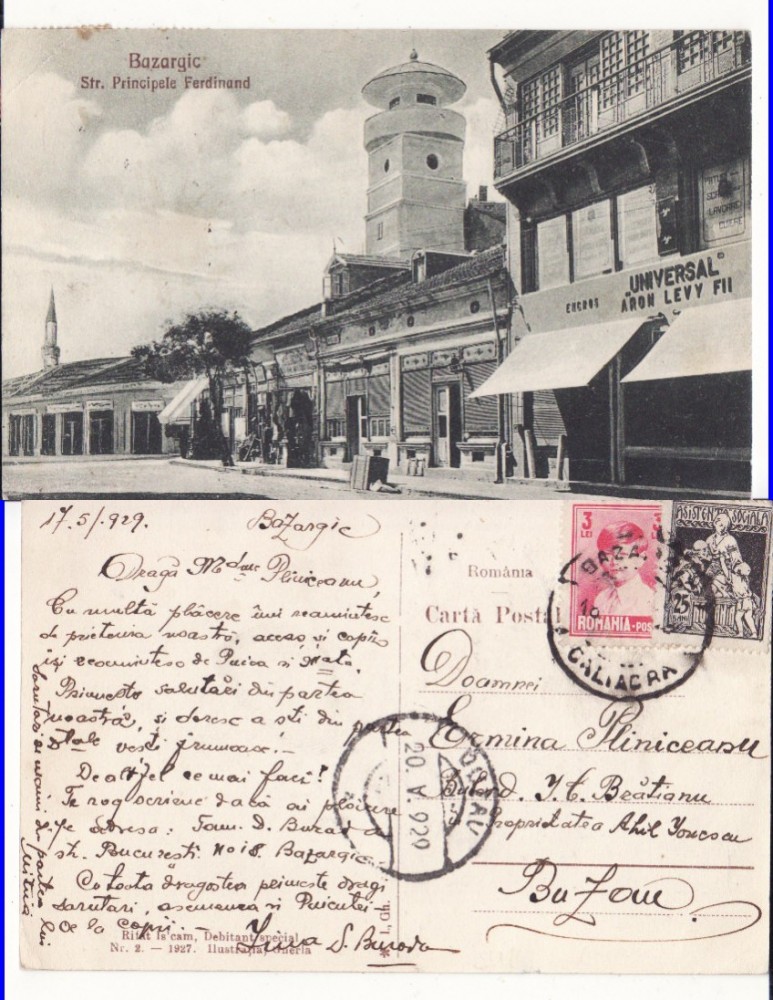 Bazargic
Str. Principele Ferdinand
"UNIVERSAL"
ENGROS ARON LEVY FII
17.5/.929. Bazargic
Dragă Mdme Pliniceanu,
Cu multă plăcere îmi reamintesc
de prietenia noastră, aceas și copiii
își reamintesc de Puica si
Primește salutări din partea
noastră, și doresc a ști din partea
Dtale vești frumoase! -
De altfel ce mai faci!
Te rog scriene dacă ai plăcere
pe adresa: Fam. D.
str. București No 18. Bazargic
Cu toată dragostea primește dragi
sărutări, asemenea și Puicutei
de la copii. -
S.
Sărutări de mâini din partea lui
Mituia
Rifat Is'cam, Debitant special
Nr. 2. — 1927. Ilustrația
România
Carta Postal
3 LEI 3
ROMANIA-POS
ASISTENTA SOCIALA
25
BAZA
18
CALIACRA
BUZAU
20.V.929
Doamnei
Ermina Pliniceanu
Bulevard. I. C. Brătianu
Proprietatea Ahil Ionescu
Buzau